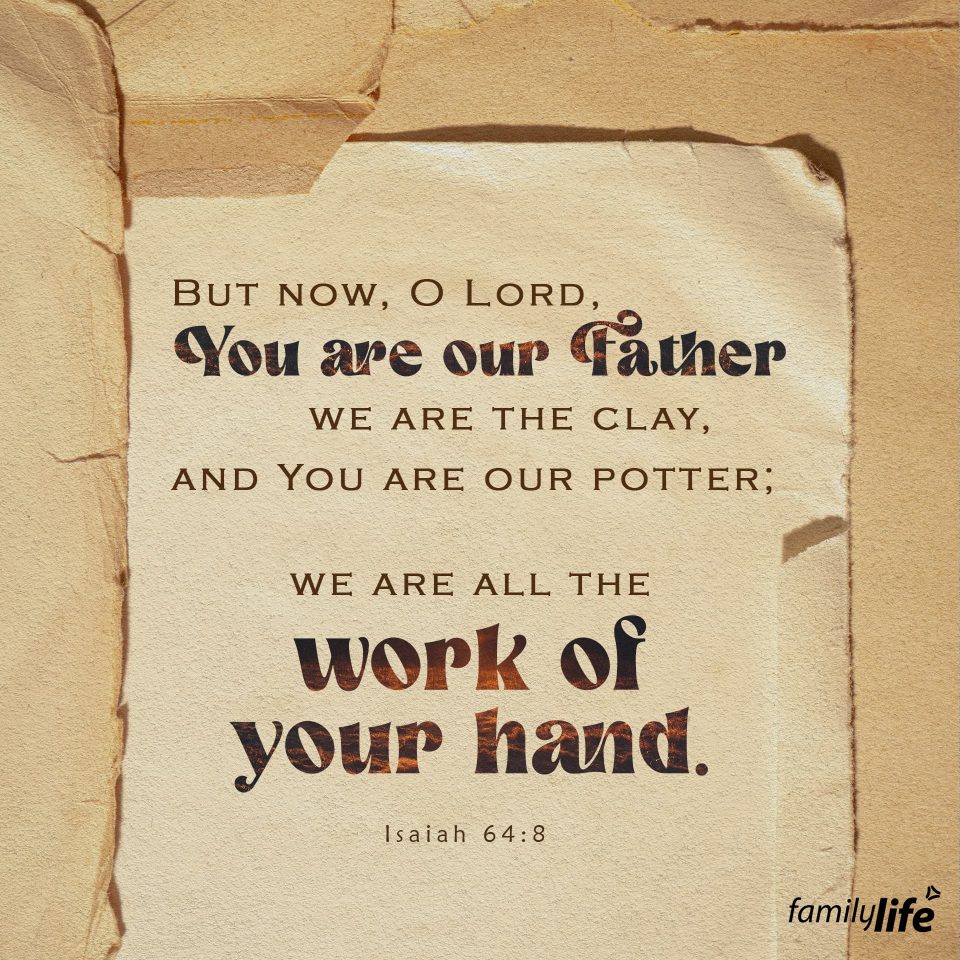 But now, O Lord,
You are our Father
we are the clay,
and You are our potter;
we are all the
work of
your hand.
Isaiah 64:8
familylife